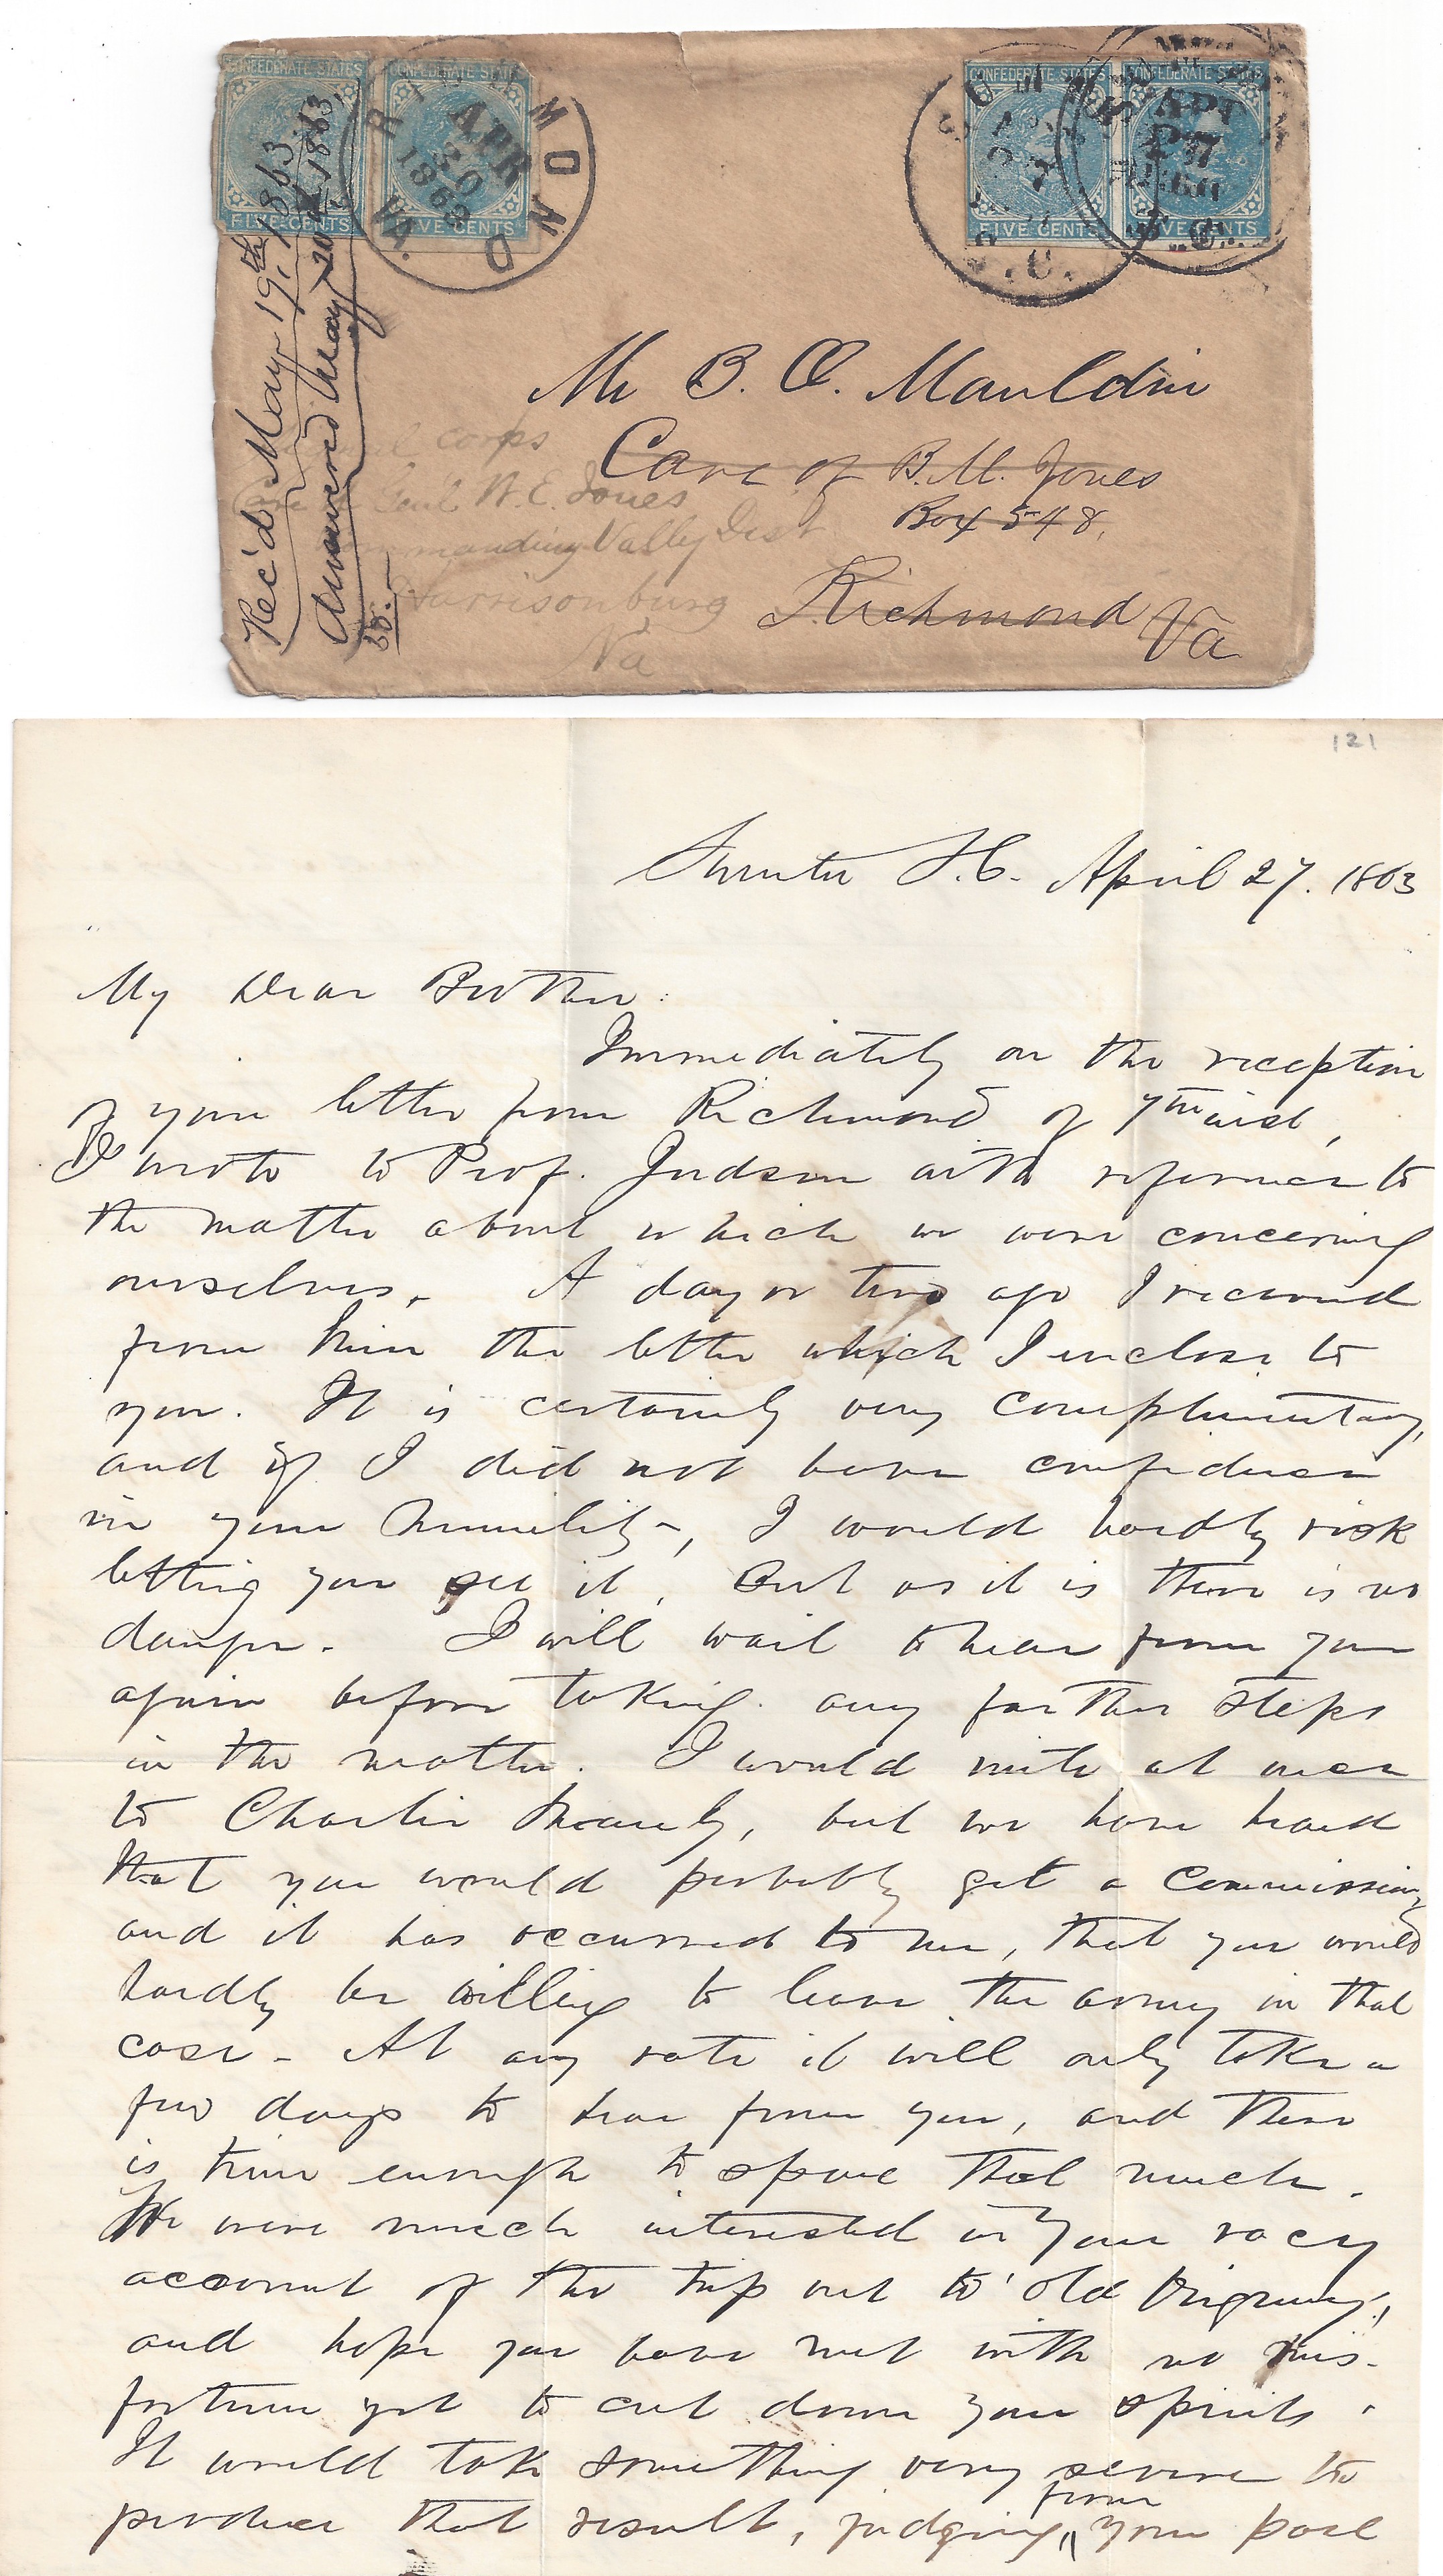 CONFEDERATE STATES
FIVE CENTS
CONFEDERATE STATES
FIVE CENTS
RICHMOND VA.
APR
30
1863
CONFEDERATE STATES
FIVE CENTS
CONFEDERATE STATES
FIVE CENTS
S.C.
Rec'd May 19th, 1863
Answered May 20th 1863,
Mr B. O. Mauldin
Care of B. M. Jones
Box 548,
Richmond Va
corps
Genl W. E. Jones
Commanding Valley Dist
Harrisonburg
Va
121
Sumter S.C. April 27. 1863
My Dear Brother:
Immediately on the reception
of your letter from Richmond of 7th inst,
I wrote to Prof. Judson with reference to
the matter about which we were concerning
ourselves. A day or two ago I received
from him the letter which I enclose to
you. It is certainly very complimentary,
and if I did not have confidence
in your humility, I would hardly risk
letting you see it, But as it is there is no
danger. I will wait to hear from you
again before taking any farther steps
in the matter. I would write at once
to Charlie Manly, but we have heard
that you would probably get a Commission,
and it has occurred to me, that you would
hardly be willing to leave the army in that
case. At any rate it will only take a
few days to hear from you, and there
is time enough to spare that much.
We were much interested in your racy
account of the trip out to 'old Virginny',
and hope you have met with no mis-
fortune yet to cut down your spirits.
It would take something very severe to
produce that result, judging from your past